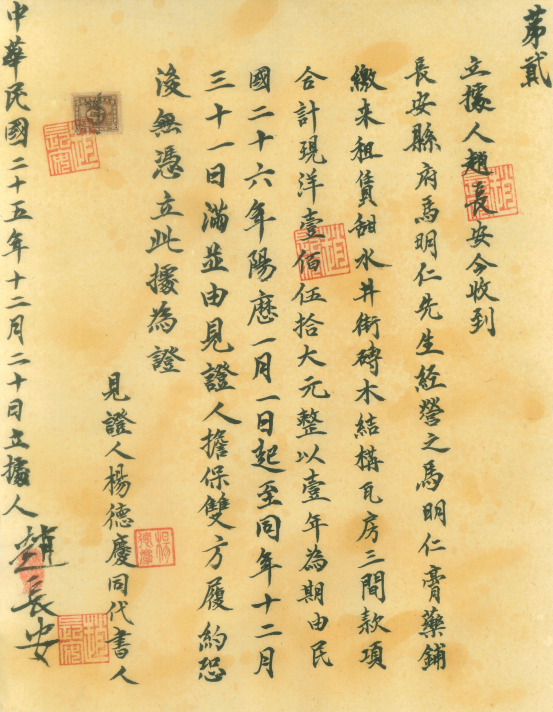 第貳
立據人趙長安今收到
長安縣府馬明仁先生經營之馬明仁膏藥鋪
繳來租賃甜水井街磚木結構瓦房三間款項
合計現洋壹佰伍拾大元整以壹年為期由民
國二十六年陽歷一月一日起至同年十二月
三十一日滿並由見證人擔保雙方履約恐
後無憑立此據為證
見證人楊德慶同代書人
中華民國二十五年十二月二十日立據人
趙長安